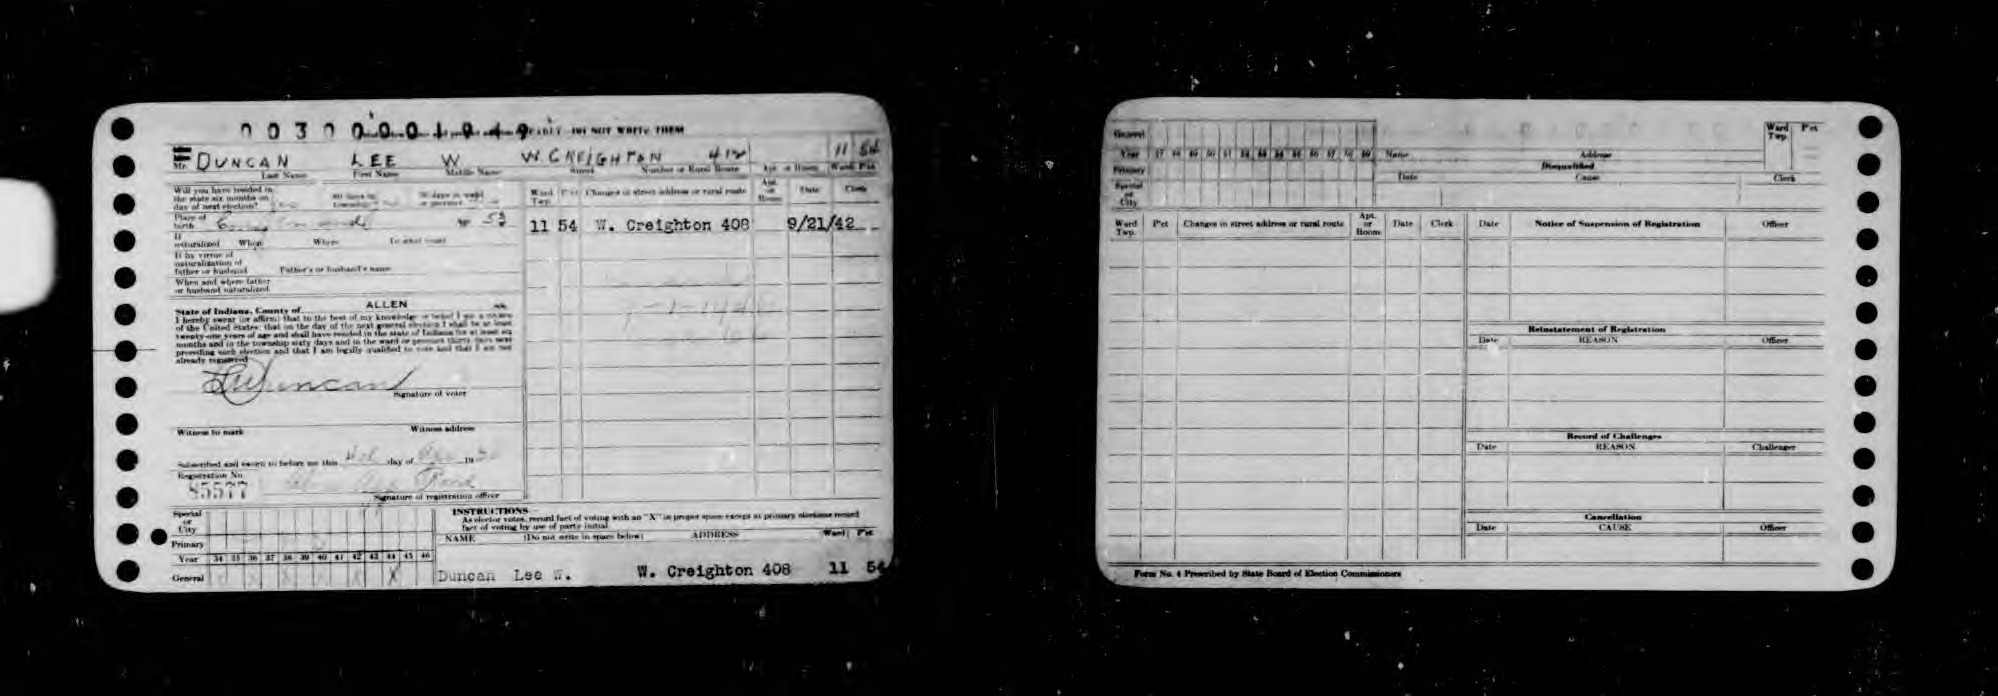 0 0 3 0 0 0 0 1 0 4 9 DO NOT WRITE THEM
Mr. DUNCAN LEE W W. CREIGHTON 412 11 54
Last Name First Name Middle Name Street Number or Rural Route Apt. or Room Ward Pct
Will you have resided in
the state six months on
day of next election?
60 days in
township
30 days in ward
or precinct
Ward Twp. Pct Changes in street address or rural route Apt. or Room Date Clerk
Place of
birth 53
11 54 W. Creighton 408 9/21/42
If
naturalized When Where In what court
If by virtue of
naturalization of
father or husband Father's or husband's name
When and where father
or husband naturalized
ALLEN
State of Indiana, County of
I hereby swear (or affirm) that to the best of my knowledge or belief I am a citizen
of the United States; that on the day of the next general election I shall be at least
twenty-one years of age and shall have resided in the state of Indiana for at least six
months and in the township sixty days and in the ward or precinct thirty days next
preceding such election and that I am legally qualified to vote and that I am not
already registered
L W Duncan
Signature of voter
Witness to mark Witness address
Subscribed and sworn to before me this day of 19
Registration No.
85577
Signature of registration officer
Special
or
City
Primary
Year 34 35 36 37 38 39 40 41 42 43 44 45 46
General X X X X X X
INSTRUCTIONS
As elector votes, record fact of voting with an "X" in proper space except at primary elections record
fact of voting by use of party initial
NAME (Do not write in space below) ADDRESS Ward Pct
Duncan Lee W. W. Creighton 408 11 54
General
Year 47 48 49 50 51 52 53 54 55 56 57 58 59
Primary
Special
or
City
Name Address
Ward Twp. Pct
Disqualified
Date Cause Clerk
Ward Twp. Pct Changes in street address or rural route Apt. or Room Date Clerk
Date Notice of Suspension of Registration Officer
Reinstatement of Registration
Date REASON Officer
Record of Challenges
Date REASON Challenger
Cancellation
Date CAUSE Officer
Form No. 4 Prescribed by State Board of Election Commissioners